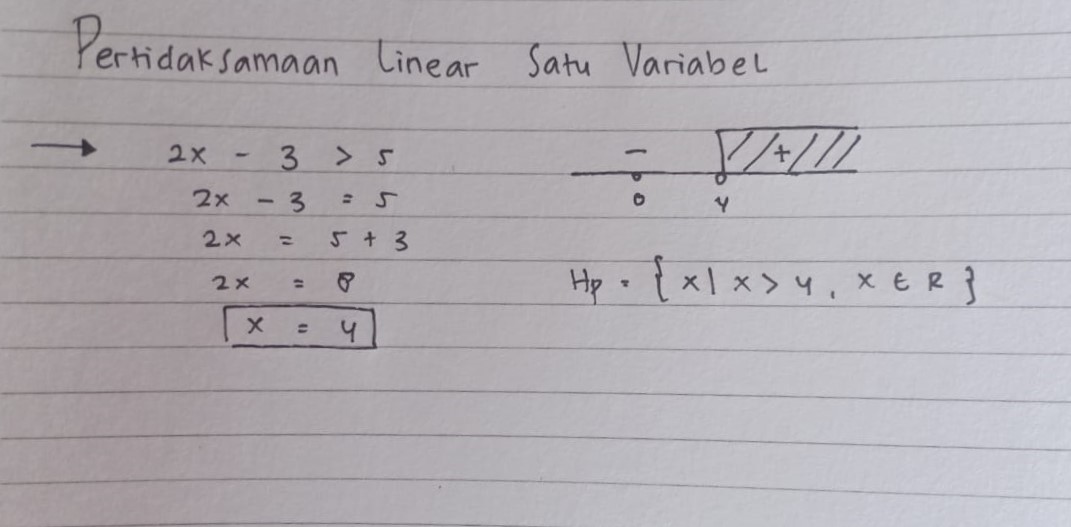 Pertidaksamaan Linear Satu Variabel
2x - 3 > 5
2x - 3 = 5
2x = 5 + 3
2x = 8
x = 4
- +
0 4
Hp = { x | x > 4, x ∈ R }